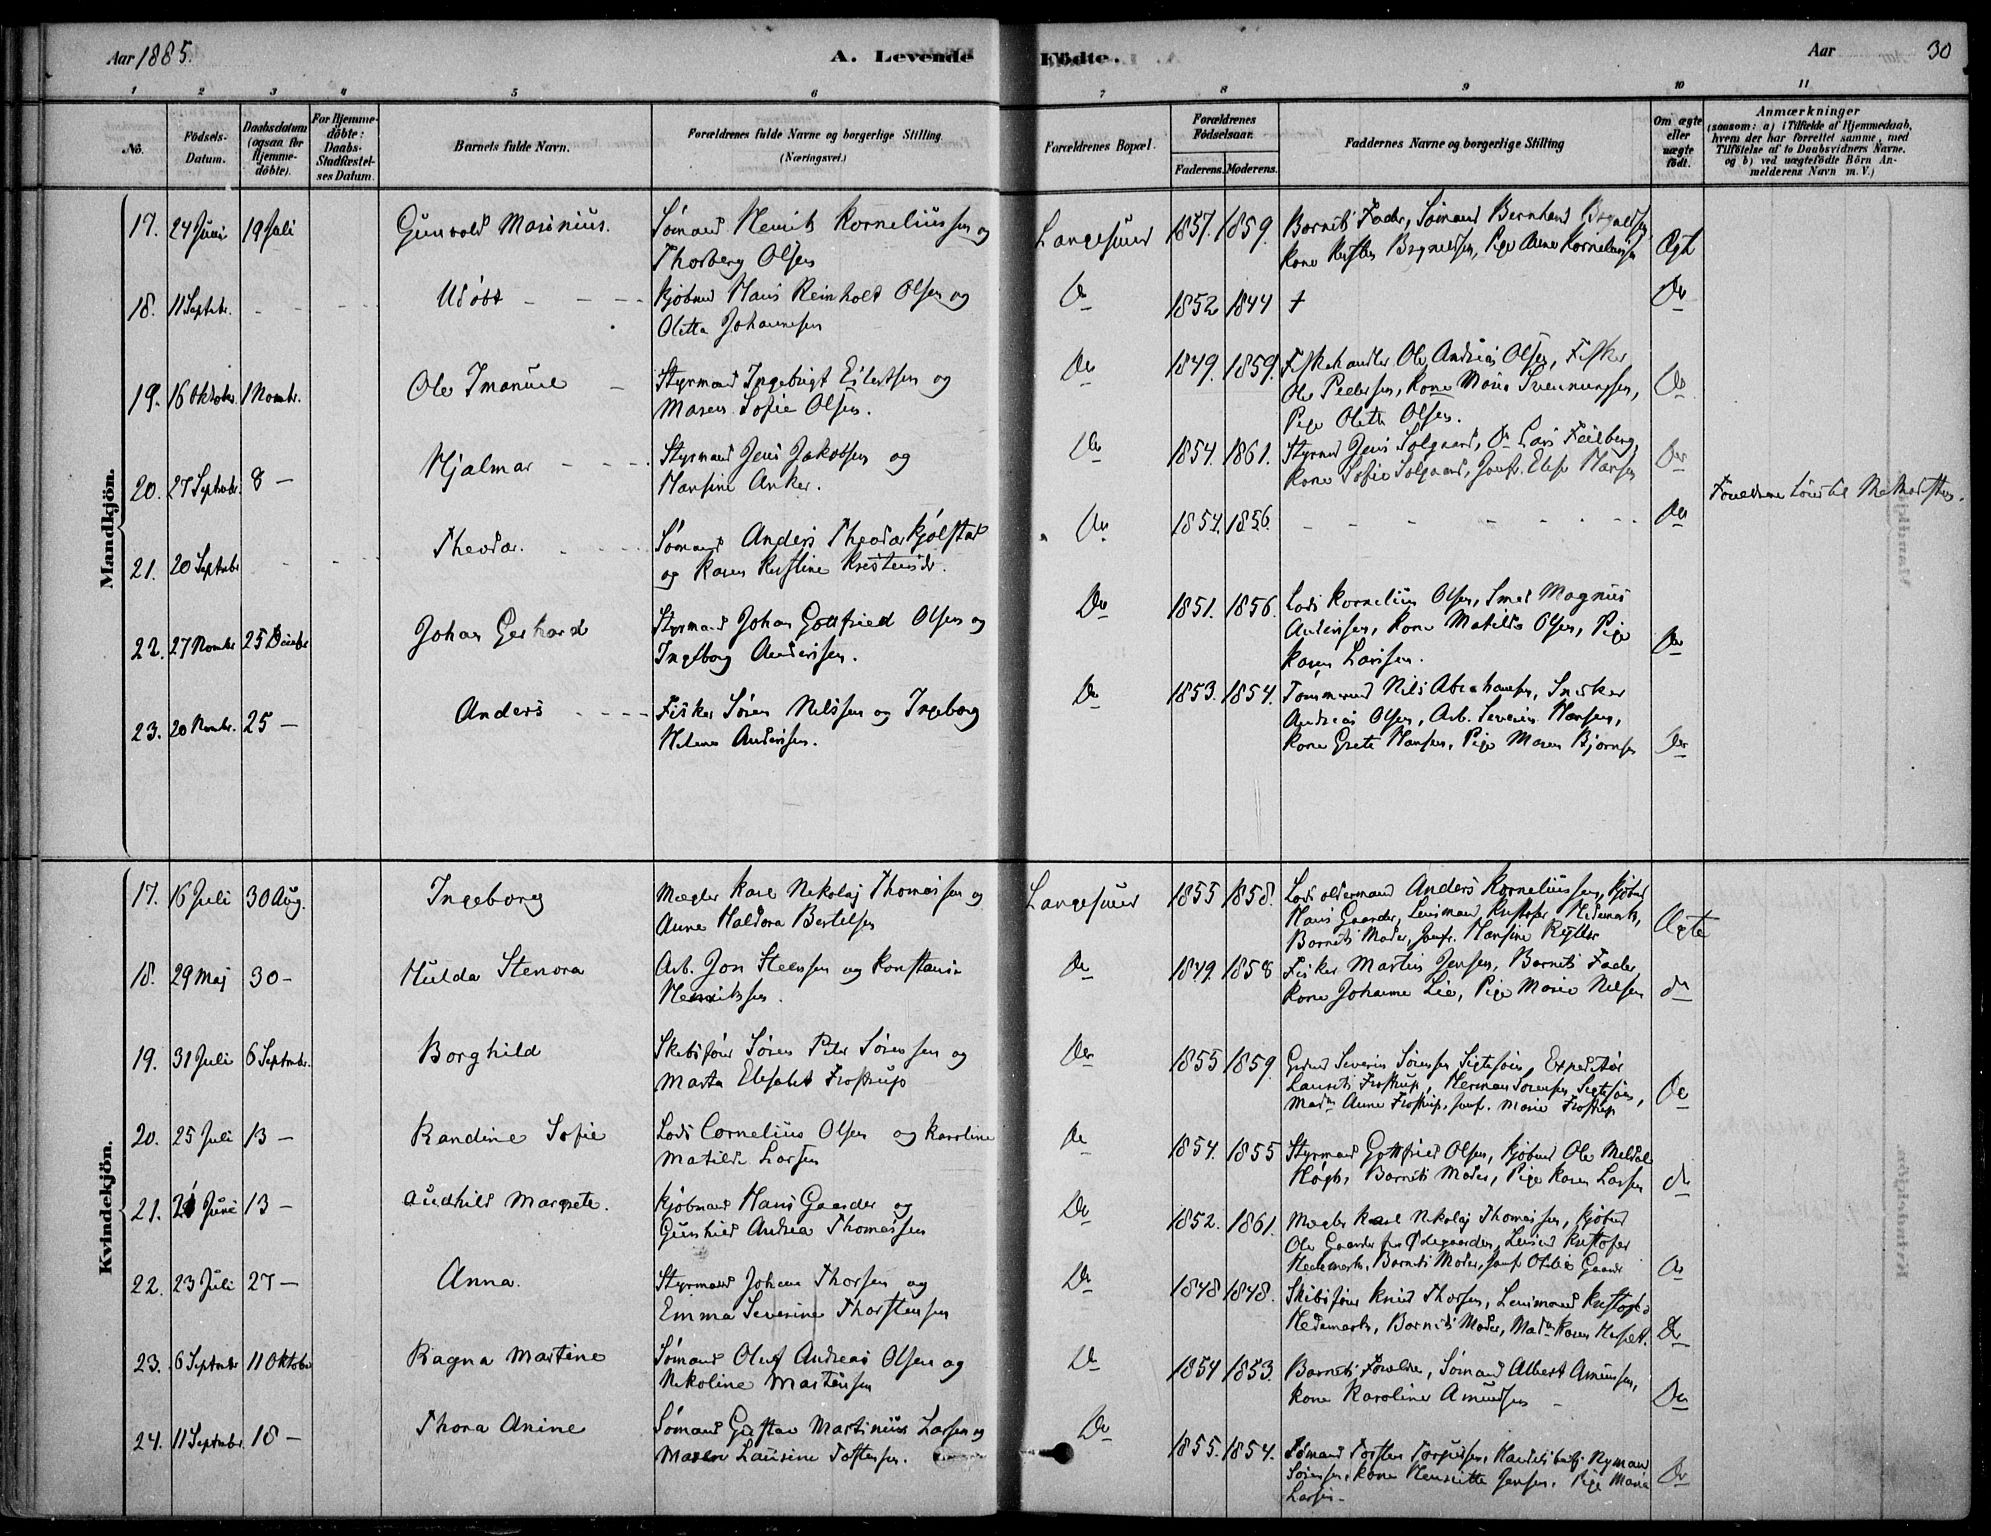 Aar 1885.
A. Levende Födte.
Aar 30
1 2 3 4 5 6 7 8 9 10 11
No.
Födsels-Datum.
Daabsdatum (ogsaa for Hjemme-döbte).
For Hjemme-döbte: Daabs-Stadfæstel-ses Datum.
Barnets fulde Navn.
Forældrenes fulde Navne og borgerlige Stilling.
(Næringsvei.)
Forældrenes Bopæl.
Forældrenes Födselsaar.
Faderens. Moderens.
Faddernes Navne og borgerlige Stilling
Om ægte eller uægte födt.
Anmærkninger
(saasom: a) i Tilfælde af Hjemmedaab,
hvem der har forrettet samme, med
Tilföielse af to Daabsvidners Navne,
og b) ved uægtefödte Börn An-
melderens Navn m. V.)
Mandkjön.
17. 24 Juni 19 Juli Gunvald Marinius. Sømand Henrik Korneliussen og Langesund 1857. 1859. Barnets Fader, Sømand Bernhard
Thorberg Olsen Kone Pige Anne Korneliussen Ægte
18. 11 Septbr. - - - Udøbt - - - Kjøbmd Hans Reinholt Olsen og Do 1852 1844 + Do
Oletta Johannesen
19. 16 Oktober 1 Novmbr. Ole Imanuel - Styrmand Ingebrigt Eilertsen og Do 1849. 1859. Fiskehandler Ole Andreas Olsen, Fisker
Maren Sofie Olsen. Ole Pedersen, Kone Maria Svennungsen, Do
Pige Oletta Olsen.
20. 27 Septmbr. 8 - Hjalmar - - - Styrmand Jens Jakobsen og Do 1854. 1861. Styrmd Jens Solgaard, Do Lars Feilberg,
Hansine Anker. Kone Sofie Solgaard, Jomf. Elise Hansen Do
21. 20 Septmbr - - Theodor. - - - Sømand Anders Theodor Kjølstad Do 1854. 1856. - - - - - Do
og Karen Kirstine
22. 27 Novmbr 25 Decmbr Johan Gerhard Styrmand Johan Gottfried Olsen og Do 1851. 1856. Lods Kornelius Olsen, Smed Magnus
Ingeborg Andersen. Andersen, Kone Matilde Olsen, Pige Do
Karen Larsen.
23. 20 Novmbr. 25 - Anders - - - Fisker Søren Nilssen og Ingeborg Do 1853. 1854. Tømmermd Nils Abrahamsen, Snedker
Helene Andersen. Andreas Olsen, Arb. Severin Hansen,
Kone Grete Hansen, Pige Maren Bjørnsen Do
Kvindekjön.
17. 16 Juli 30 Aug. Ingeborg Mægler Karl Nikolaj Thomassen og Langesund 1855 1858. Lodsoldermand Anders Korneliussen, Kjøbmd
Anne Haldora Bertelsen Hans Gaarder, Lensmand Kristofer Hedemark, Ægte
Barnets Moder, Jomfr. Hansine Rytter
18. 29 Maj 30 - Hulda Stenora Arb. Jon Steensen og Konstanse Do 1849. 1858 Fisker Martin Jensen, Barnets Fader
Henriksen. Kone Johanne Lie, Pige Marie Nilsen do
19. 31 Juli 6 Septmbr. Borghild Skibsfører Søren Peter Sørensen og Do 1855 1859. Severin Sørensen, Expeditør
Marta Elisabet Frostrup Laurits Frostrup, Herman Sørensen, Do
Madm Anne Frostrup, Jomf. Marie Frostrup
20. 25 Juli 13 - Randine Sofie Lods Cornelius Olsen og Karoline Do 1854. 1855 Styrmand Gottfried Olsen, Kjøbmd Ole Meldal
Matilde Larsen Høgh, Barnets Moder, Pige Karen Larsen do
21. 21 Juni 13 - Audhild Margrete. Kjøbmand Hans Gaarder og Do 1852. 1861. Mægler Karl Nikolaj Thomassen, Kjøbmd
Gunhild Andrea Thomassen Ole Gaarder Ødegaarden, Lensmd Kristofer
Hedemark, Barnets Moder, Jomf. Otilie Gaarder Do
22. 23 Juli 27 - Anna. Styrmand Johan Thorsen og Do 1848 1848. Skibsfører Knud Thorsen, Lensmand Kristofer
Emma Severine Thorstensen Hedemark, Barnets Moder, Madm Karen Do
23. 6 Septmbr 11 Oktober Ragna Martine Sømand Oluf Andreas Olsen og Do 1854 1853. Barnets Forældre, Sømand Albert Amundsen,
Nikoline Martinsen Kone Karoline Amundsen Do
24. 11 Septmbr. 18 - Thora Anine Sømand Gustav Martinius Larsen og Do 1855. 1854. Sømand Torsten Torgersen, Nyman
Maren Laurine Tostensen. Sørensen, Kone Henriette Jensen, Pige Maria Do
Larsen.